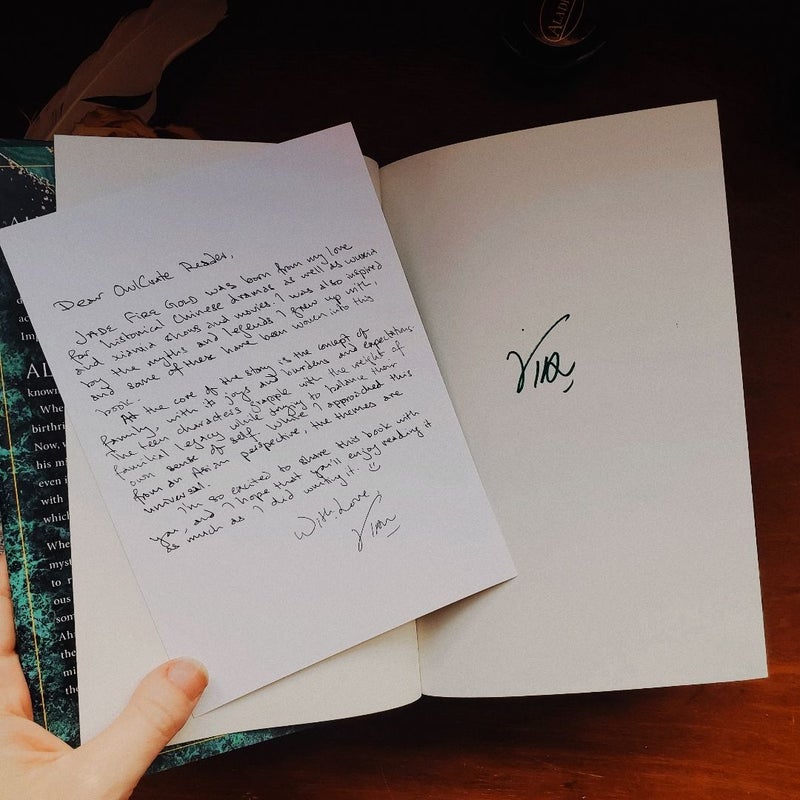 ALADI
Dear OwlCrate Reader,
JADE FIRE GOLD was born from my love
for historical Chinese dramas as well as wuxia
and xianxia shows and movies. I was also inspired
by the myths and legends I grew up with,
and some of these have been woven into this
book.
At the core of the story is the concept of
family, with its joys and burdens and expectations.
The teen characters grapple with the weight of
familial legacy while trying to balance their
own sense of self. While I approached this
from an Asian perspective, the themes are
universal.
I'm so excited to share this book with
you, and I hope that you'll enjoy reading it
as much as I did writing it. ☺
With love
AL
known
Whe
birthri
Now,
his mi
even i
with
which
Whe
myst
to r
ous
som
the
mi